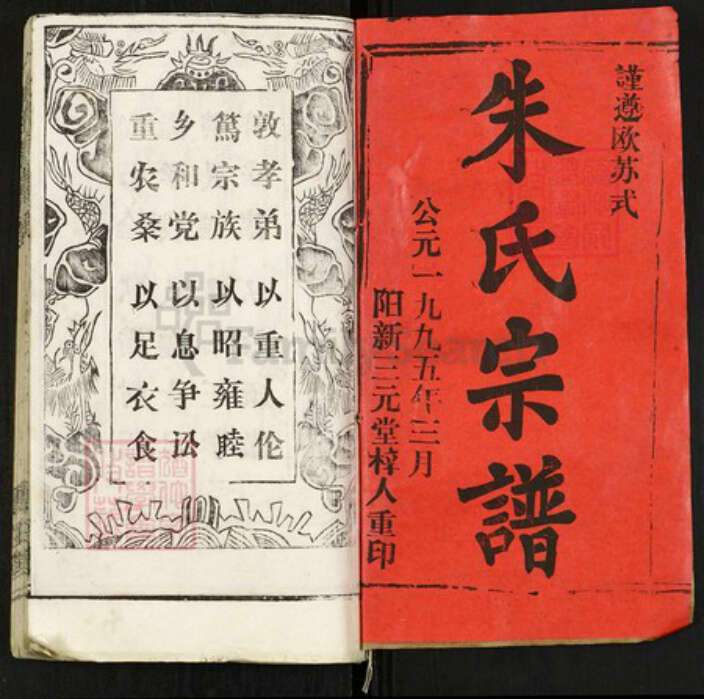 謹遵欧苏式
朱氏宗譜
公元一九九五年三月
阳新三元堂梓人重印
敦孝弟以重人伦
篤宗族以昭雍睦
乡和党以息争讼
重农桑以足衣食